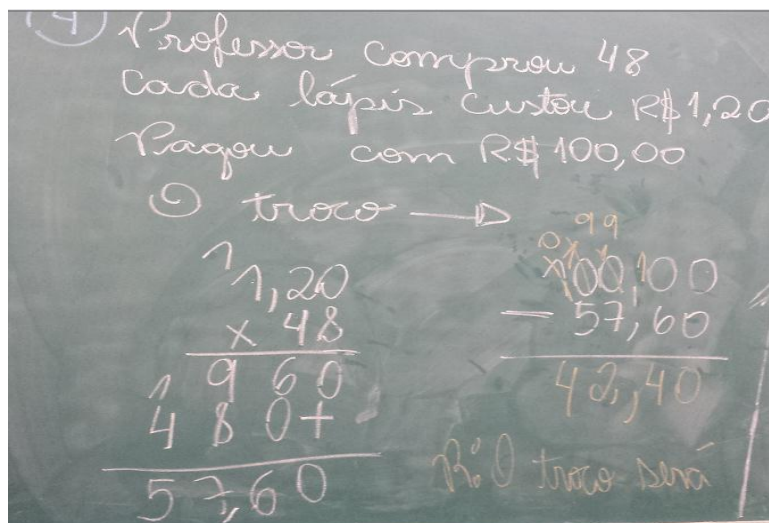 4
Professor comprou 48
Cada lápis custou R$1,20
Pagou com R$100,00
O troco
1
1,20
x 48
960
1
480+
57,60
99
0
100,100
- 57,60
42,40
R: O troco será